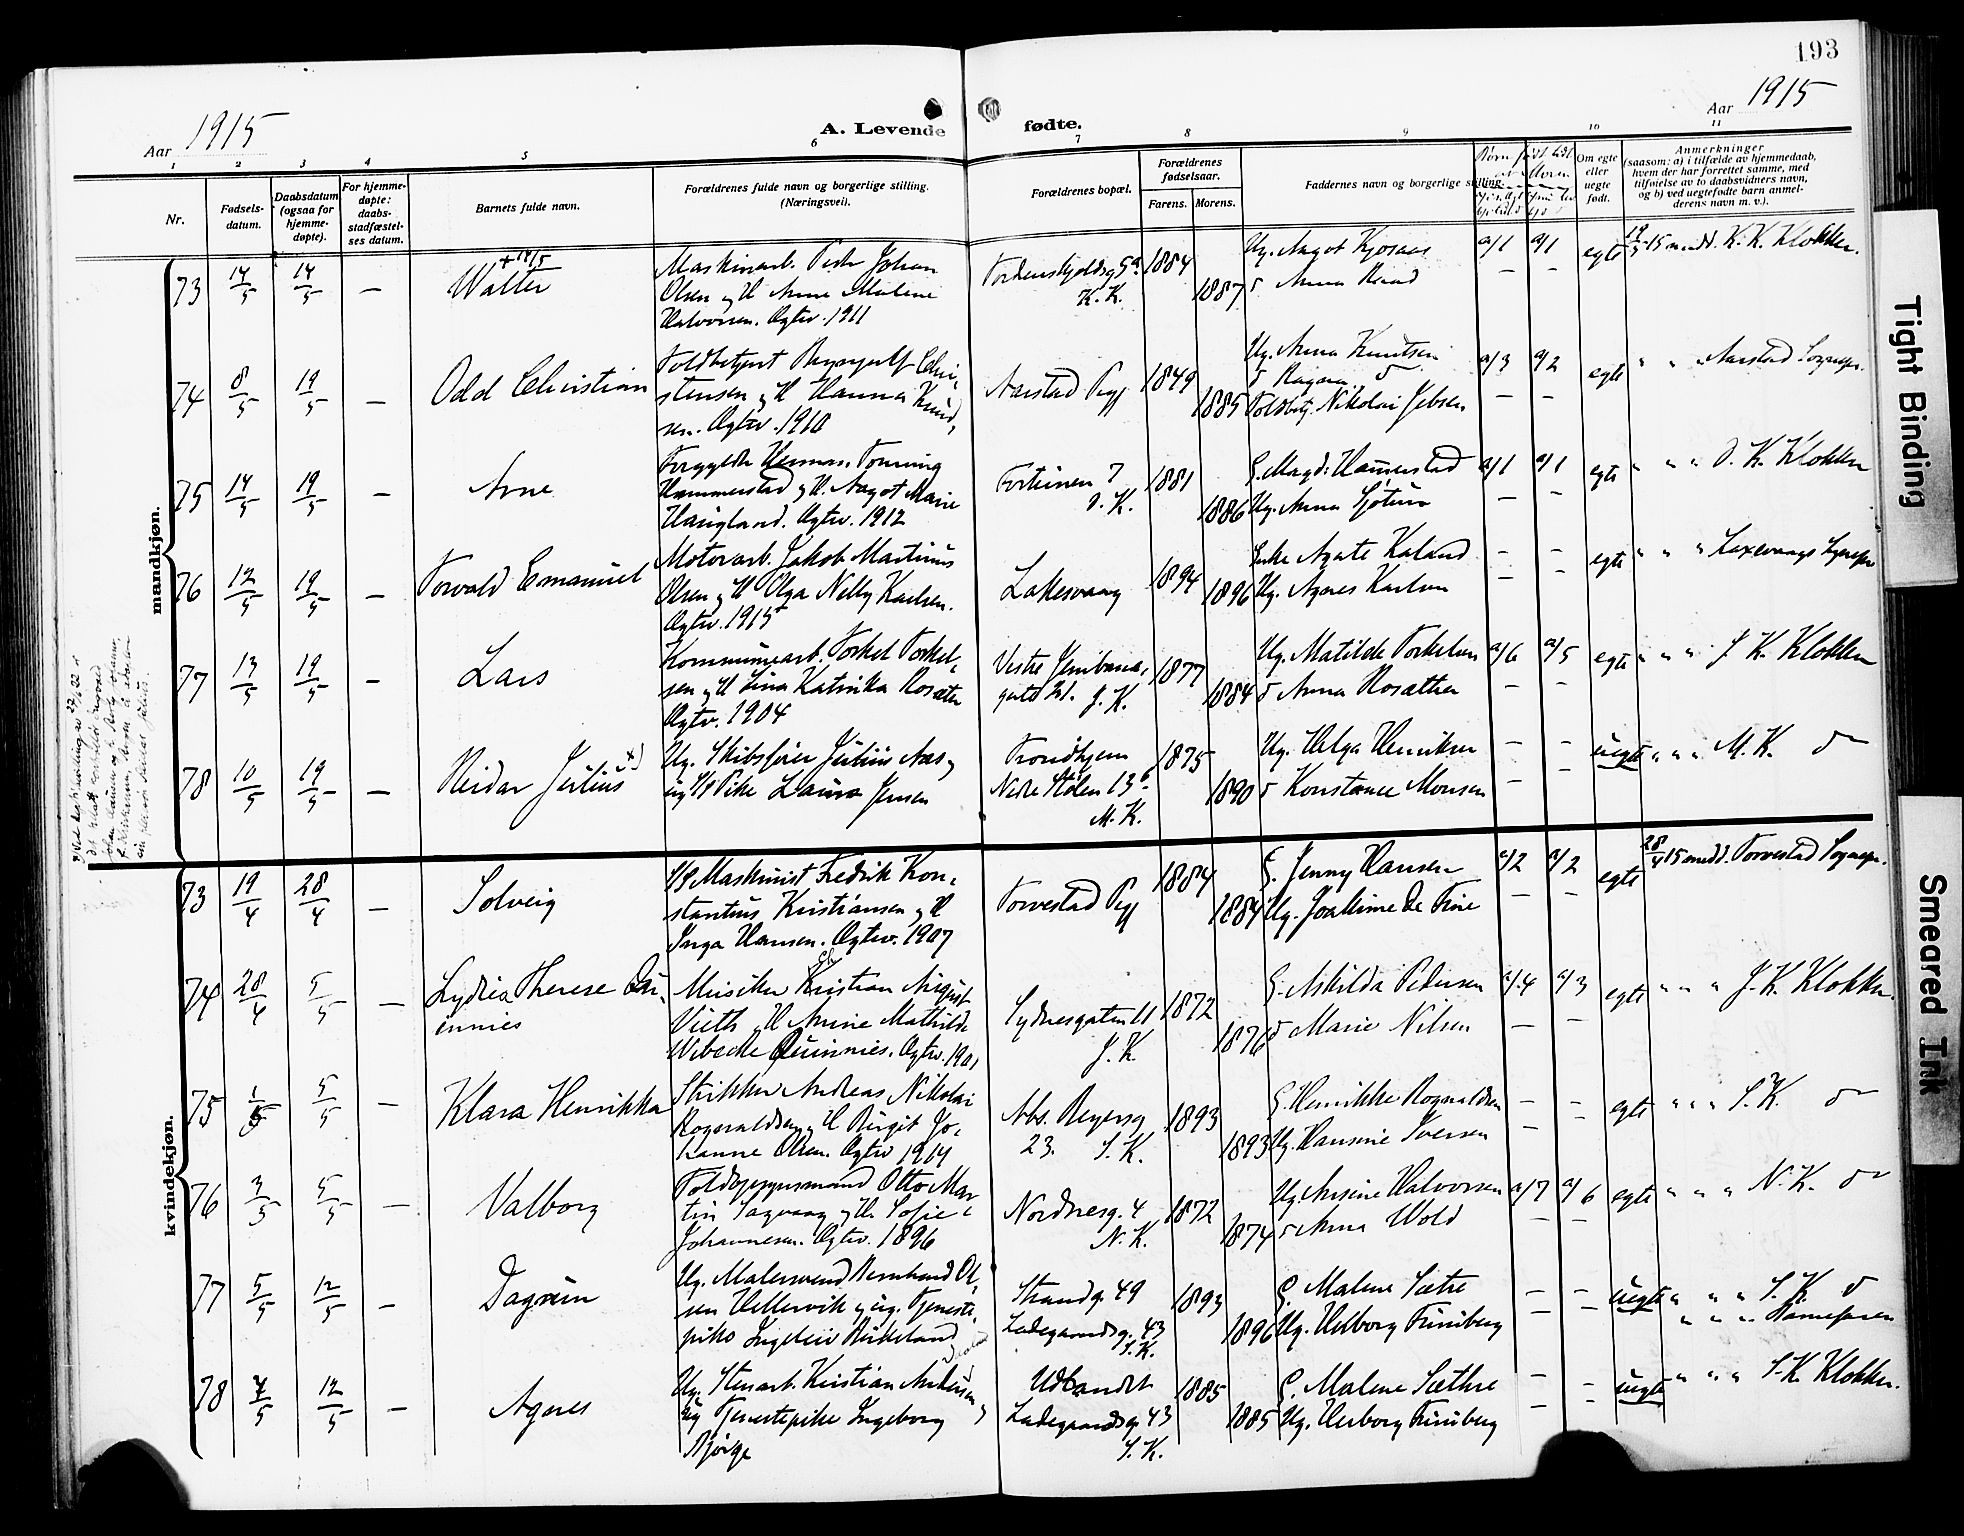 193
Aar 1915
A. Levende fødte.
Aar 1915
1 2 3 4 5 6 7 8 9 10 11
Nr.
Fødsels-
datum.
Daabsdatum
(ogsaa for
hjemme-
døpte).
For hjemme-
døpte:
daabs-
stadfæstel-
ses datum.
Barnets fulde navn.
Forældrenes fulde navn og borgerlige stilling.
(Næringsvei).
Forældrenes bopæl.
Forældrenes
fødselsaar.
Farens. Morens.
Faddernes navn og borgerlige stilling.
Om egte
eller
uegte
født.
Anmerkninger
(saasom: a) i tilfælde av hjemmedaab,
hvem der har forrettet samme, med
tilføielse av to daabsvidners navn,
og b) ved uegtefødte barn anmel-
derens navn m. v.).
mandkjøn.
73 14/5 14/5 —
+ 14/5
Walter
Maskinarb. Peder Johan
Olsen og H Anne Malene
Halvorsen. Ægtev. 1911
Tordenskjoldsg 5a
K. K.
1884
1887
Ug. Aagot Kjosaas
a/1 a/1 egte 19/5 15 medd. K. K. Klokker.
74 8/5 19/5 —
Odd Christian
Toldbetjent Chri-
stensen og H Hanna Knud-
sen. Ægtev. 1910
Aarstad Pgj
1849
1885
Ug. Anna Knutsen
Toldbetj. Nikolai Jebsen
a/3 a/2 egte " " " Aarstad Sognepr.
75 14/5 19/5 —
Arne
Forgylder Herman Tonning
Hammerstad og H. Aagot Marie
Haugland. Ægtev. 1912
Fortunen 7
D. K.
1881
1886
G. Magd. Hammerstad
Ug. Anna
a/1 a/1 egte " " " D. K. Klokker
76 12/5 19/5 —
Torvald Emanuel
Motorarb. Jakob Martinus
Olsen og H Olga Nelly Karlsen.
Ægtev. 1915
Laksevaag
1894
1896
Enke Agate Kaland
Ug. Agnes Karlsen
— — egte " " " Laxevaags Sognepr
77 13/5 19/5 —
Lars
Kommunearb. Torkel Torkel-
sen og H Lina Katinka Rosæter
Ægtev. 1904
Vestre Jernbane-
gate 21. J. K.
1877
1884
Ug. Matilde Torkelsen
d Anna Rosæther
a/6 a/5 egte " " " J. K. Klokker
78 10/5 19/5 —
Reidar Julius x)
Ug. Skibsfører Julius Aas og
ug Pike Laura Jensen
Trondhjem
Nedre Stølen 13b
M. K.
1875
1890
Ug. Helga Henriksen
d Konstance Monsen
— — uegte " " " M. K. d
kvindekjøn.
73 19/4 28/4 —
Solveig
Maskinist Fredrik Kon-
stantius Kristiansen og H
Inga Hansen. Ægtev. 1907
Torvestad Pgj
1884
1884
G. Jenny Hansen
Ug. Joakime De Fine
a/2 a/2 egte 28/4 15 medd. Torvestad Sognepr.
74 28/4 5/5 —
Lydia Therese Qu-
innies
Musiker Kristian August
Vieth og H Anine Mathilde
Wibecke Quinnies. Ægtev. 1901
Sydnesgaten 11
J. K.
1872
1876
G. Askilda Pedersen
d Marie Nilsen
a/4 a/3 egte " " " J. K. Klokker.
75 1/5 5/5 —
Klara Henrikka
Strikker Andreas Nikolai
Rognvaldsen og H Birgit Jo-
hanne Olsen. Ægtev 1914
Abs. Beyersg
23. S. K.
1893
1893
G. Henrikke Rognaldsen
Ug. Hansine Iversen
— — egte " " " S. K. d
76 3/5 5/5 —
Valborg
Toldopsynsmand Otto Mar-
tin Sagvaag og H. Sofie
Johannesen. Ægtev. 1896
Nordnesg. 4
N. K.
1872
1874
Ug. Ansine Halvorsen
d Anna Wold
a/7 a/6 egte " " " N. K. d
77 5/5 12/5 —
Dagrun
Ug. Malersvend Bernhard Ol-
sen Hellervik og ug. Tjeneste-
pike Ingeleiv Birkeland
Strandg. 49
Ladegaardsg. 43
S. K.
1893
1896
G. Malene Sætre
Ug. Herborg Finneberg
— — uegte " " " S. K. d
78 4/5 12/5 —
Agnes
Ug. Stenarb. Kristian Andersen og
ug Tjenestepike Ingeborg
Bjørge
Udlandet
Ladegaardsg 43
S. K.
1885
1885
G. Malene Sæthre
Ug. Herborg Finneberg
— — uegte " " " S. K Klokker.
Tight Binding
Smeared Ink